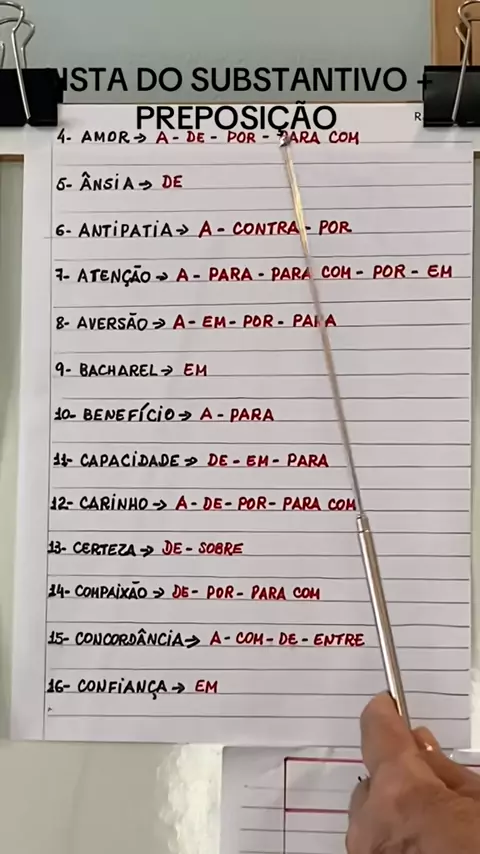 LISTA DO SUBSTANTIVO +
PREPOSIÇÃO
4- AMOR → A - DE - POR - PARA COM
5- ÂNSIA → DE
6- ANTIPATIA → A - CONTRA - POR
7- ATENÇÃO → A - PARA - PARA COM - POR - EM
8- AVERSÃO → A - EM - POR - PARA
9- BACHAREL → EM
10- BENEFÍCIO → A - PARA
11- CAPACIDADE → DE - EM - PARA
12- CARINHO → A - DE - POR - PARA COM
13- CERTEZA → DE - SOBRE
14- COMPAIXÃO → DE - POR - PARA COM
15- CONCORDÂNCIA → A - COM - DE - ENTRE
16- CONFIANÇA → EM